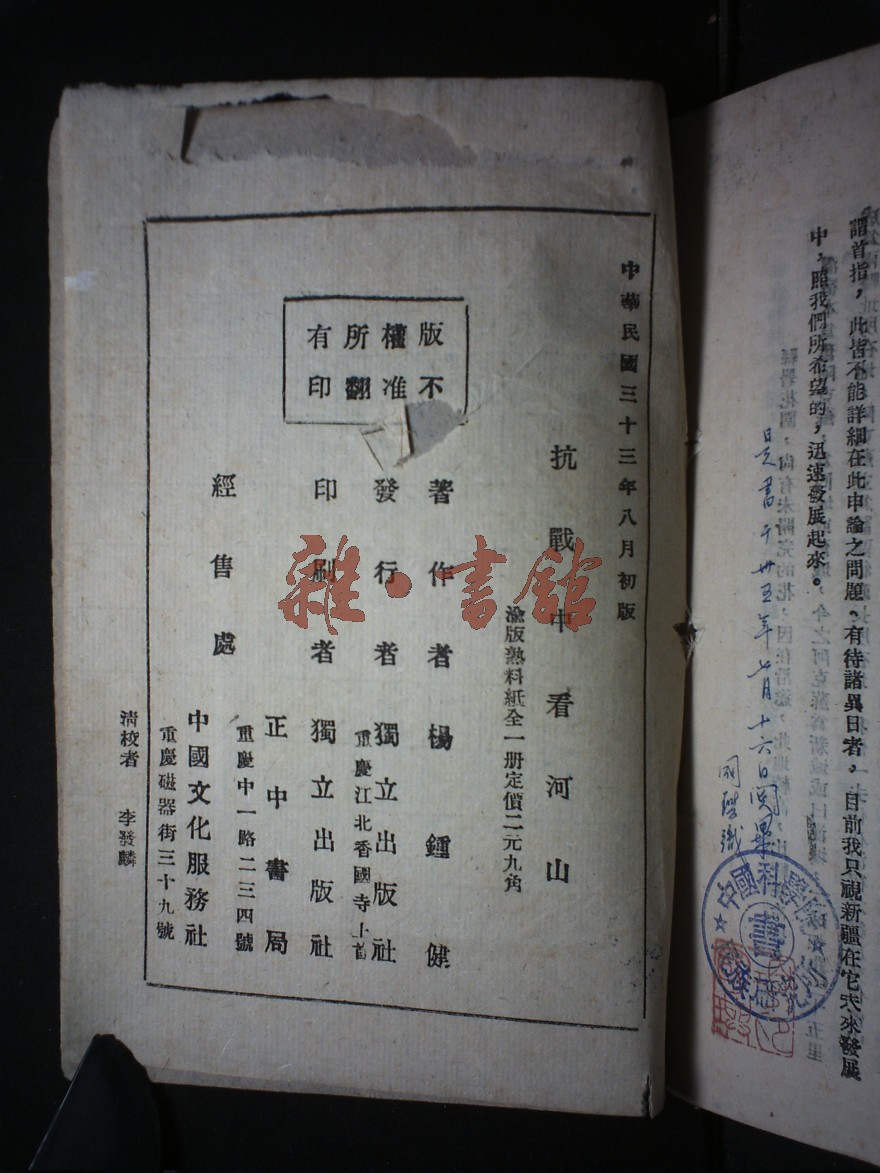 謂首指，此皆不能詳細在此申論之問題。有待諸異日者。目前我只視新疆在它未來發展
中，照我們所希望的，迅速發展起來。
是書于卅五年七月十六日閱畢
中國科學
書
中華民國三十三年八月初版
抗戰中看河山
渝版熟料紙全一冊定價二元九角
版權所有
不准翻印
著作者 楊鍾健
發行者 獨立出版社
重慶江北香國寺上首
印刷者 獨立出版社
經售處
正中書局
重慶中一路二三四號
中國文化服務社
重慶磁器街三十九號
清校者 李發麟
雜·書館